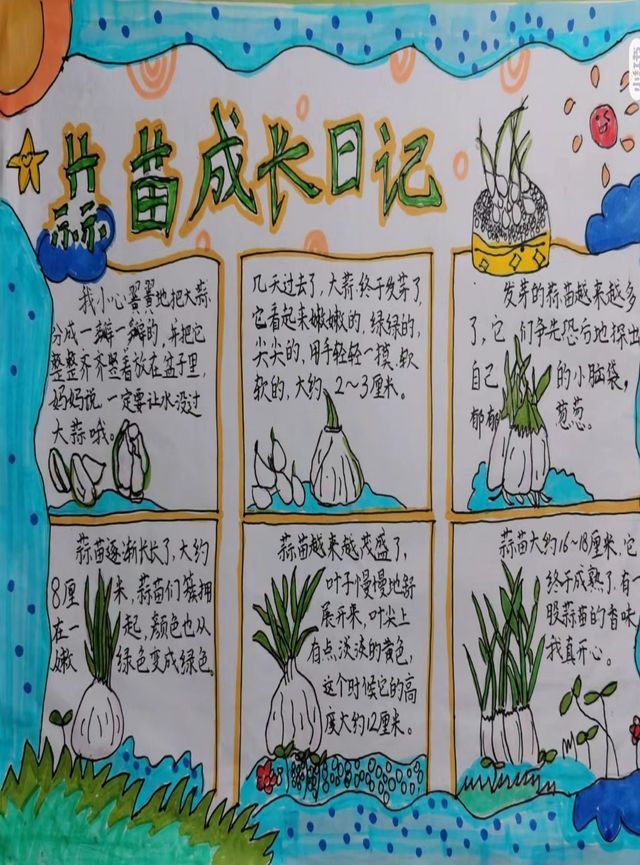 蒜苗成长日记
我小心翼翼地把大蒜
分成一瓣一瓣的,并把它
整整齐齐竖着放在盆子里,
妈妈说,一定要让水没过
大蒜哦。
几天过去了,大蒜终于发芽了,
它看起来嫩嫩的,绿绿的,
尖尖的,用手轻轻一摸,软
软的,大约2~3厘米。
发芽的蒜苗越来越多
了,它们争先恐后地探出
自己的小脑袋,
郁郁葱葱。
蒜苗逐渐长长了,大约
8厘米,蒜苗们簇拥
在一起,颜色也从
嫩绿色变成绿色。
蒜苗越来越茂盛了,
叶子慢慢地舒
展开来,叶尖上
有点淡淡的黄色,
这个时候它的高
度大约12厘米。
蒜苗大约16~18厘米,它
终于成熟了,有一
股蒜苗的香味
我真开心。
小红书